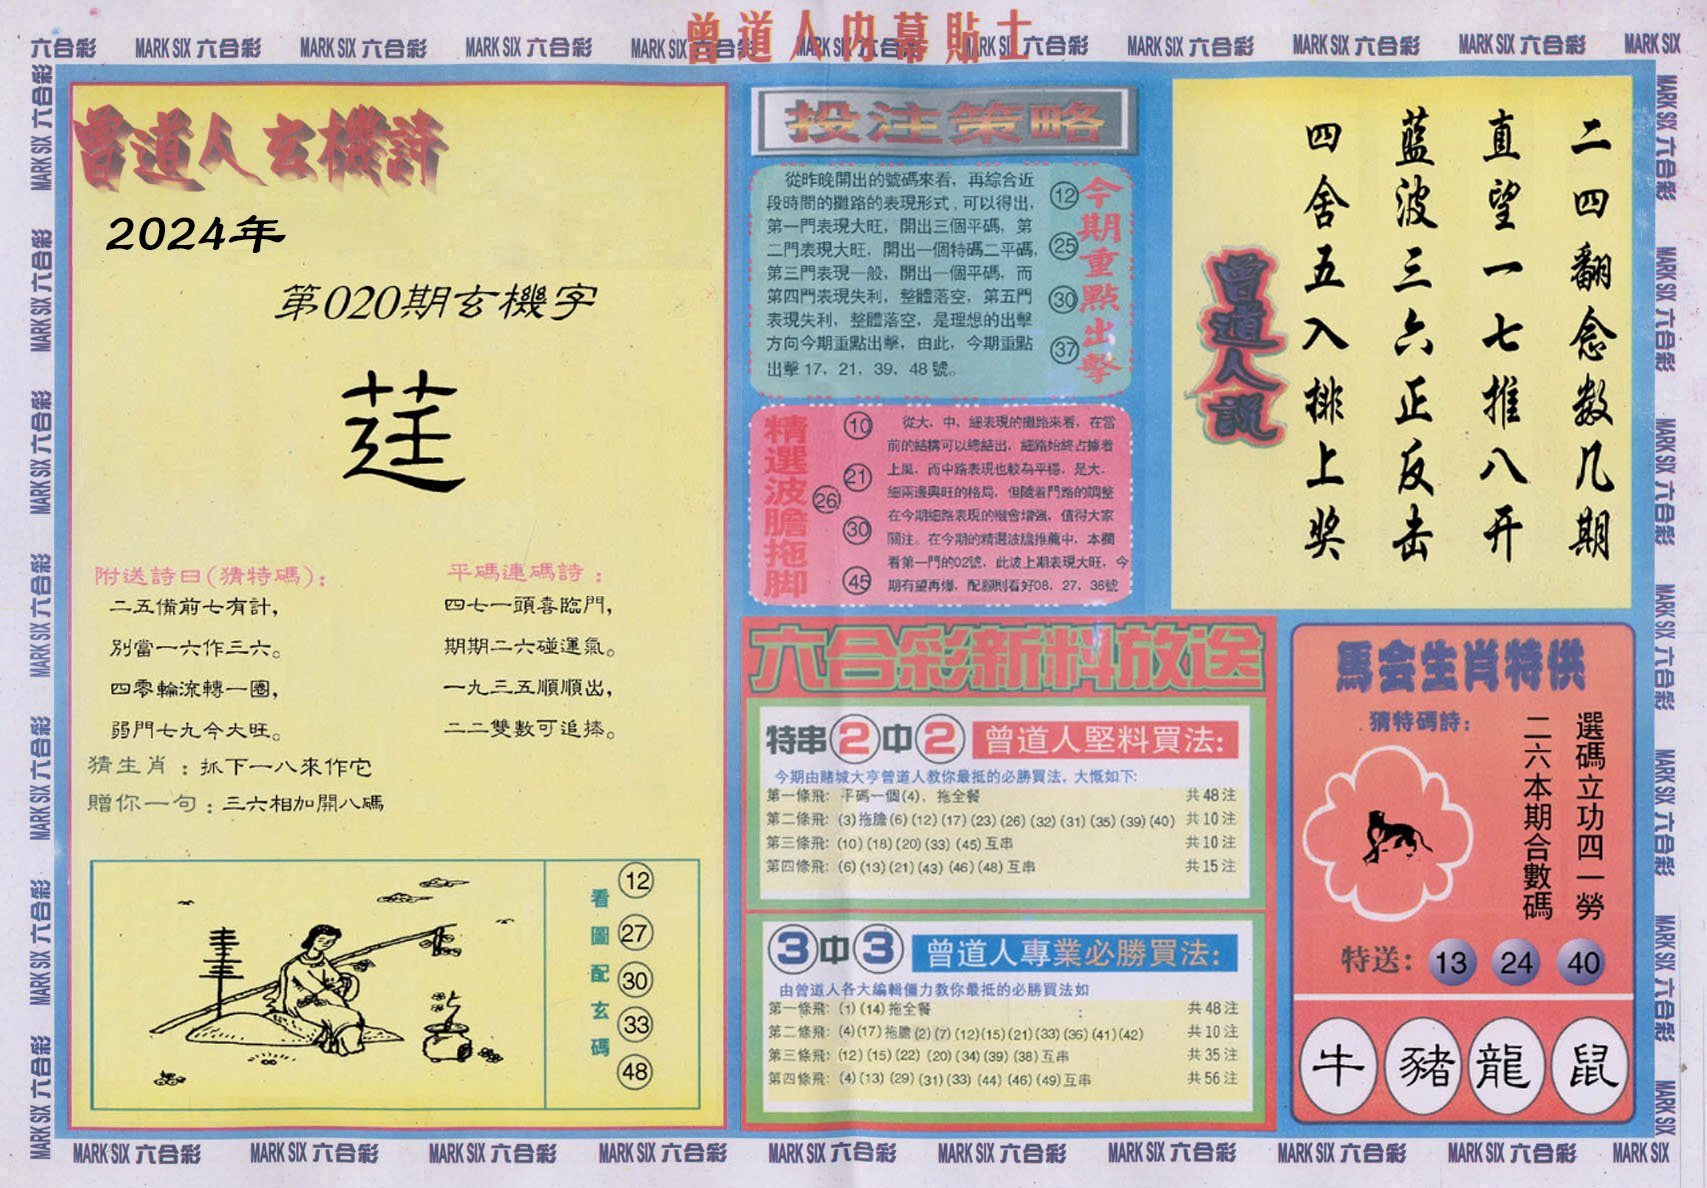 曾道人内幕貼士
六合彩 MARK SIX 六合彩 MARK SIX 六合彩 MARK SIX 六合彩 MARK SIX 六合彩 MARK SIX 六合彩 MARK SIX 六合彩 MARK SIX 六合彩 MARK SIX 六合彩 MARK SIX
曾道人玄機詩
2024年
第020期玄機字
莛
附送詩曰(猜特碼):
二五備前七有計,
別當一六作三六。
四零輪流轉一圈,
弱門七九今大旺。
平碼連碼詩:
四七一頭喜臨門,
期期二六碰運氣。
一九三五順順出,
二二雙數可追捧。
猜生肖:抓下一八來作它
贈你一句:三六相加開八碼
看圖配玄碼
12
27
30
33
48
投注策略
從昨晚開出的號碼來看，再綜合近
段時間的攤路的表現形式，可以得出，
第一門表現大旺，開出三個平碼，第
二門表現大旺，開出一個特碼二平碼，
第三門表現一般，開出一個平碼，而
第四門表現失利，整體落空，第五門
表現失利，整體落空，是理想的出擊
方向今期重點出擊，由此，今期重點
出擊17，21，39，48號。
12
25
30
37
今期重點出擊
精選波膽拖脚
10
21
26
30
45
從大、中、細表現的攤路來看，在當
前的結構可以總結出，細路始終占據着
上風，而中路表現也較為平穩，是大、
細兩邊興旺的格局，但隨着門路的調整
在今期細路表現的機會增強，值得大家
關注。在今期的精選波膽推薦中，本欄
看第一門的02號，此波上期表現大旺，今
期有望再爆，配腳則看好08、27、36號
二四翻念数几期
直望一七推八开
蓝波三六正反击
四舍五入排上奖
曾道人說
六合彩新料放送
特串2中2 曾道人堅料買法:
今期由賭城大亨曾道人教你最抵的必勝買法，大慨如下:
第一條飛: 平碼一個(4)，拖全餐 共48注
第二條飛: (3)拖膽(6)(12)(17)(23)(26)(32)(31)(35)(39)(40) 共10注
第三條飛: (10)(18)(20)(33)(45)互串 共10注
第四條飛: (6)(13)(21)(43)(46)(48)互串 共15注
3中3 曾道人專業必勝買法:
由曾道人各大編輯僵力教你最抵的必勝買法如
第一條飛: (1)(14)拖全餐 共48注
第二條飛: (4)(17)拖膽(2)(7)(12)(15)(21)(33)(36)(41)(42) 共10注
第三條飛: (12)(15)(22)(20)(34)(39)(38)互串 共35注
第四條飛: (4)(13)(29)(31)(33)(44)(46)(49)互串 共56注
馬会生肖特供
猜特碼詩:
選碼立功四一勞
二六本期合數碼
特送: 13 24 40
牛 豬 龍 鼠
MARK SIX 六合彩 MARK SIX 六合彩 MARK SIX 六合彩 MARK SIX 六合彩 MARK SIX 六合彩 MARK SIX 六合彩 MARK SIX 六合彩 MARK SIX 六合彩 MARK SIX 六合彩 MARK SIX